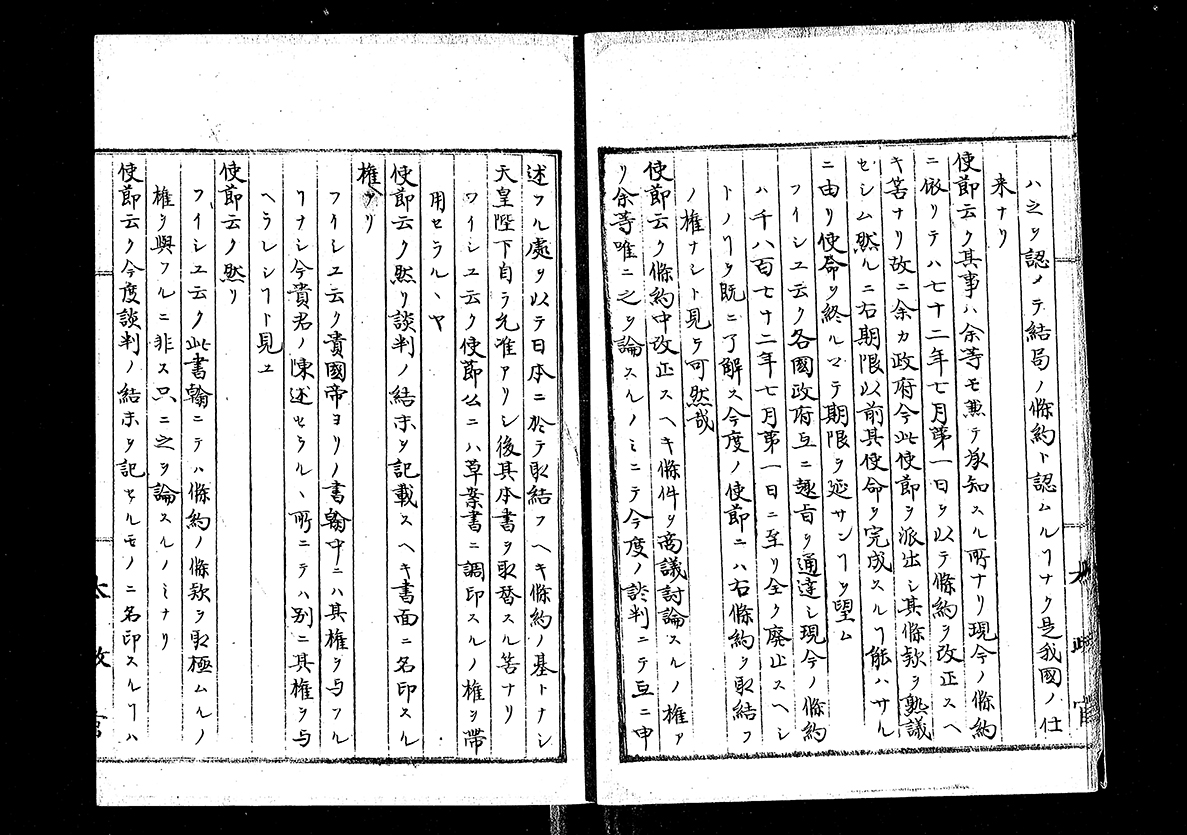 ハ之ヲ認メテ結局ノ條約ト認ムルヿナク是我國ノ仕
来ナリ
使節云ク其事ハ余等モ兼テ承知スル所ナリ現今ノ條約
ニ依リテハ七十二年七月第一日ヲ以テ條約ヲ改正スヘ
キ筈ナリ故ニ余カ政府今此使節ヲ派出シ其條款ヲ熟議
セシム然ルニ右期限以前其使命ヲ完成スルヿ能ハサル
ニ由リ使命ヲ終ルマテ期限ヲ延サンヿヲ望ム
フイシユ云ク各國政府互ニ趣旨ヲ通達シ現今ノ條約
ハ千八百七十二年七月第一日ニ至リ全ク廃止スヘシ
トノヿヲ既ニ了解ス今度ノ使節ニハ右條約ヲ取結フ
ノ權ナシト見テ可然哉
使節云ク條約中改正スヘキ條件ヲ商議討論スルノ權ア
リ余等唯ニ之ヲ論スルノミニテ今度ノ談判ニテ互ニ申
太政官
述フル處ヲ以テ日本ニ於テ取結フヘキ條約ノ基トナシ
天皇陛下自ラ允准アリシ後其本書ヲ取替スル筈ナリ
フイシユ云ク使節公ニハ草案書ニ調印スルノ權ヲ帶
用セラルヽヤ
使節云ク然リ談判ノ結末ヲ記載スヘキ書面ニ名印スル
權アリ
フイシユ云ク貴國帝ヨリノ書翰中ニハ其權ヲ与フル
ヿナシ今貴君ノ陳述セラルヽ所ニテハ別ニ其權ヲ与
ヘラレシヿト見ユ
使節云ク然リ
フイシユ云ク此書翰ニテハ條約ノ條款ヲ取極ムルノ
權ヲ與フルニ非ス只ニ之ヲ論スルノミナリ
使節云ク今度談判ノ結末ヲ記セルモノニ名印スルヿハ
太政官